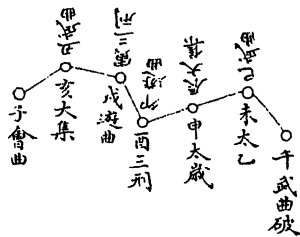 子會曲
丑武曲
亥大集
寅三刑
戌遊曲
卯遊曲
酉三刑
辰大集
申太歲
巳武曲
未太乙
午武曲破